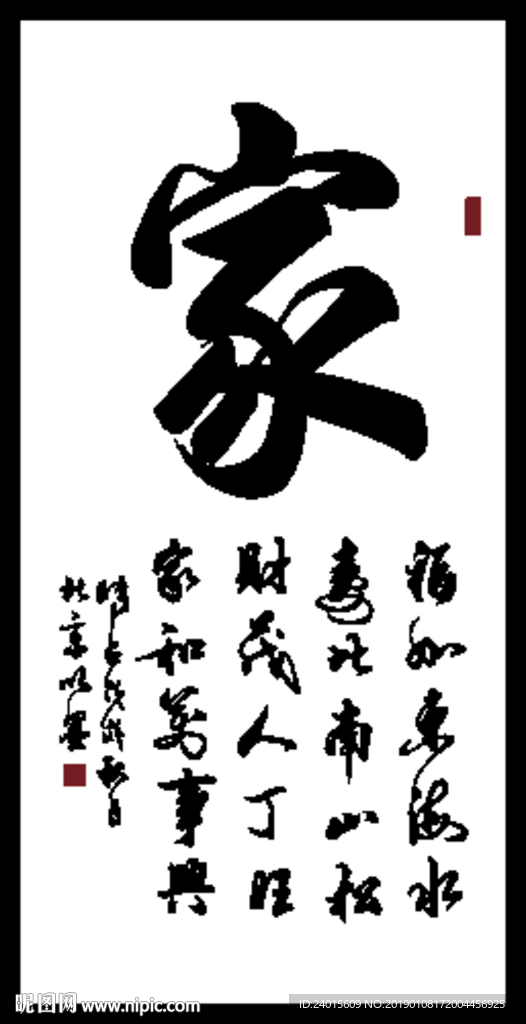 家
福如东海水
寿比南山松
財茂人丁旺
家和萬事興
时在戊戌秋月
北京以墨
昵图网 www.nipic.com
ID:24015609 NO.20190108172004456925